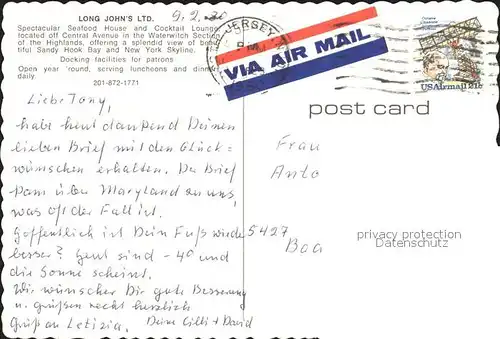 LONG JOHN'S LTD.
Spectacular Seafood House and Cocktail Lounge
located off Central Avenue in the Waterwitch Section
of the Highlands, offering a splendid view of beau-
tiful Sandy Hook Bay and New York Skyline.
Docking facilities for patrons
Open year 'round, serving luncheons and dinner
daily.
201-872-1771
9.2.
JERSEY
VIA AIR MAIL
USAirmail 21c
post card
Liebe Tany,
habe heut dankend Deinen
lieben Brief mit den Glück-
wünschen erhalten. Der Brief
kam über Maryland an uns,
was oft der Fall ist.
Hoffentlich ist Dein Fuß wieder
besser? Heut sind -4° und
die Sonne scheint.
Wir wünschen Dir gute Besserung
u. grüßen recht herzlich
Gruß an Letizia. Deine Cilli + David
Frau
Anto
5427
Baa
privacy protection
Datenschutz